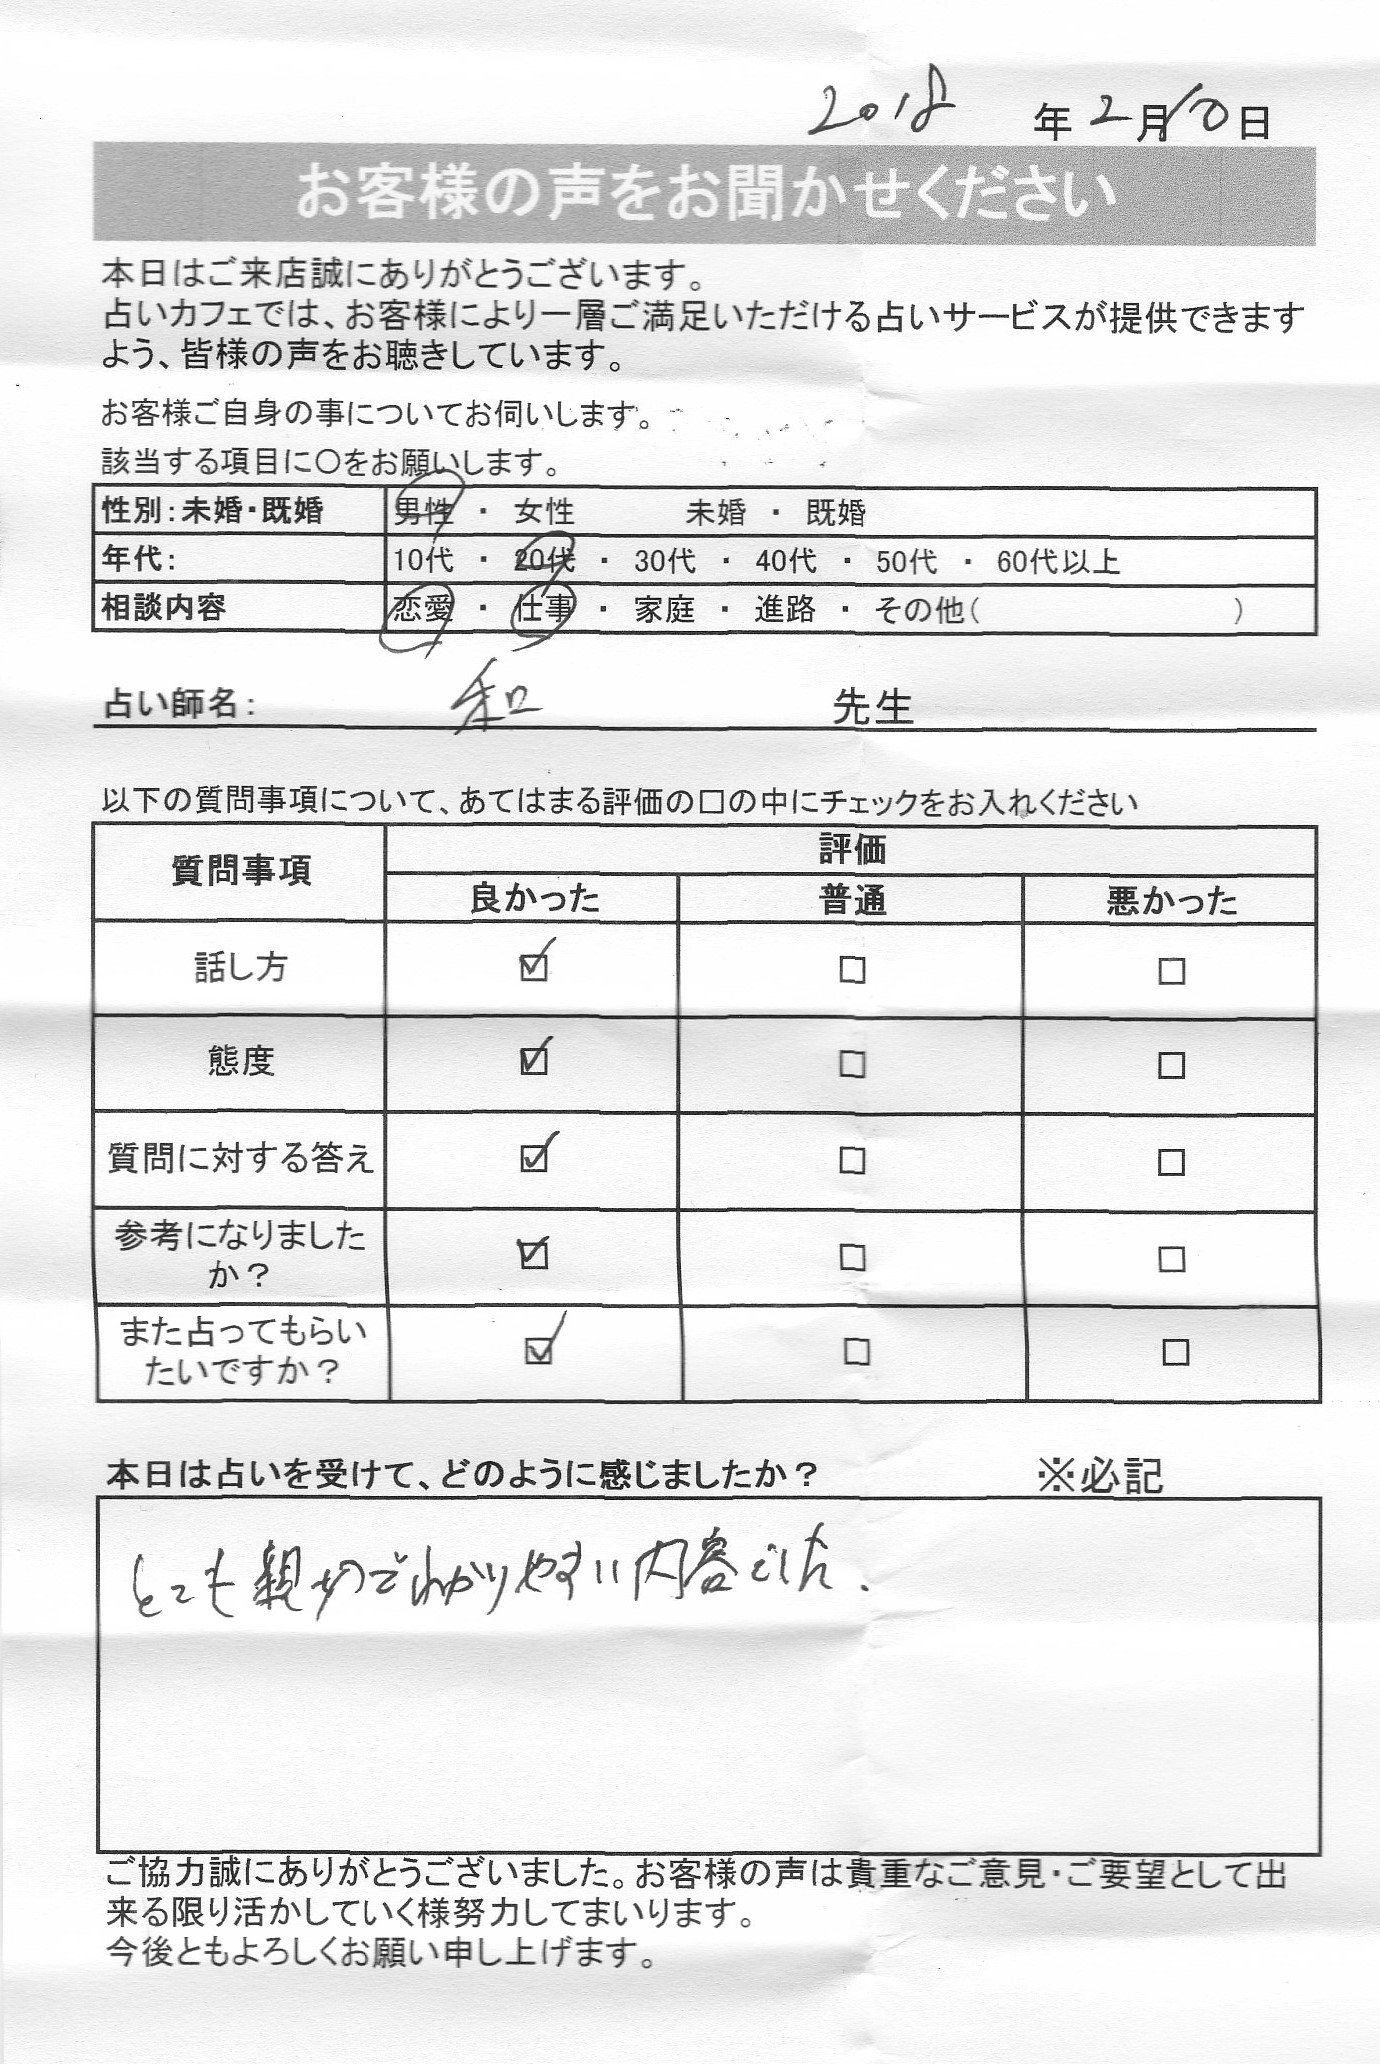 2018 年 2 月 10 日
お客様の声をお聞かせください
本日はご来店誠にありがとうございます。
占いカフェでは、お客様により一層ご満足いただける占いサービスが提供できます
よう、皆様の声をお聴きしています。
お客様ご自身の事についてお伺いします。
該当する項目に〇をお願いします。
性別：未婚・既婚 男性 ・ 女性 未婚 ・ 既婚
年代： 10代 ・ 20代 ・ 30代 ・ 40代 ・ 50代 ・ 60代以上
相談内容 恋愛 ・ 仕事 ・ 家庭 ・ 進路 ・ その他（ ）
占い師名： 和 先生
以下の質問事項について、あてはまる評価の□の中にチェックをお入れください
質問事項 評価
良かった 普通 悪かった
話し方 ☑ □ □
態度 ☑ □ □
質問に対する答え ☑ □ □
参考になりました
か？ ☑ □ □
また占ってもらい
たいですか？ ☑ □ □
本日は占いを受けて、どのように感じましたか？ ※必記
とても親切でわかりやすい内容でした.
ご協力誠にありがとうございました。お客様の声は貴重なご意見・ご要望として出
来る限り活かしていく様努力してまいります。
今後ともよろしくお願い申し上げます。